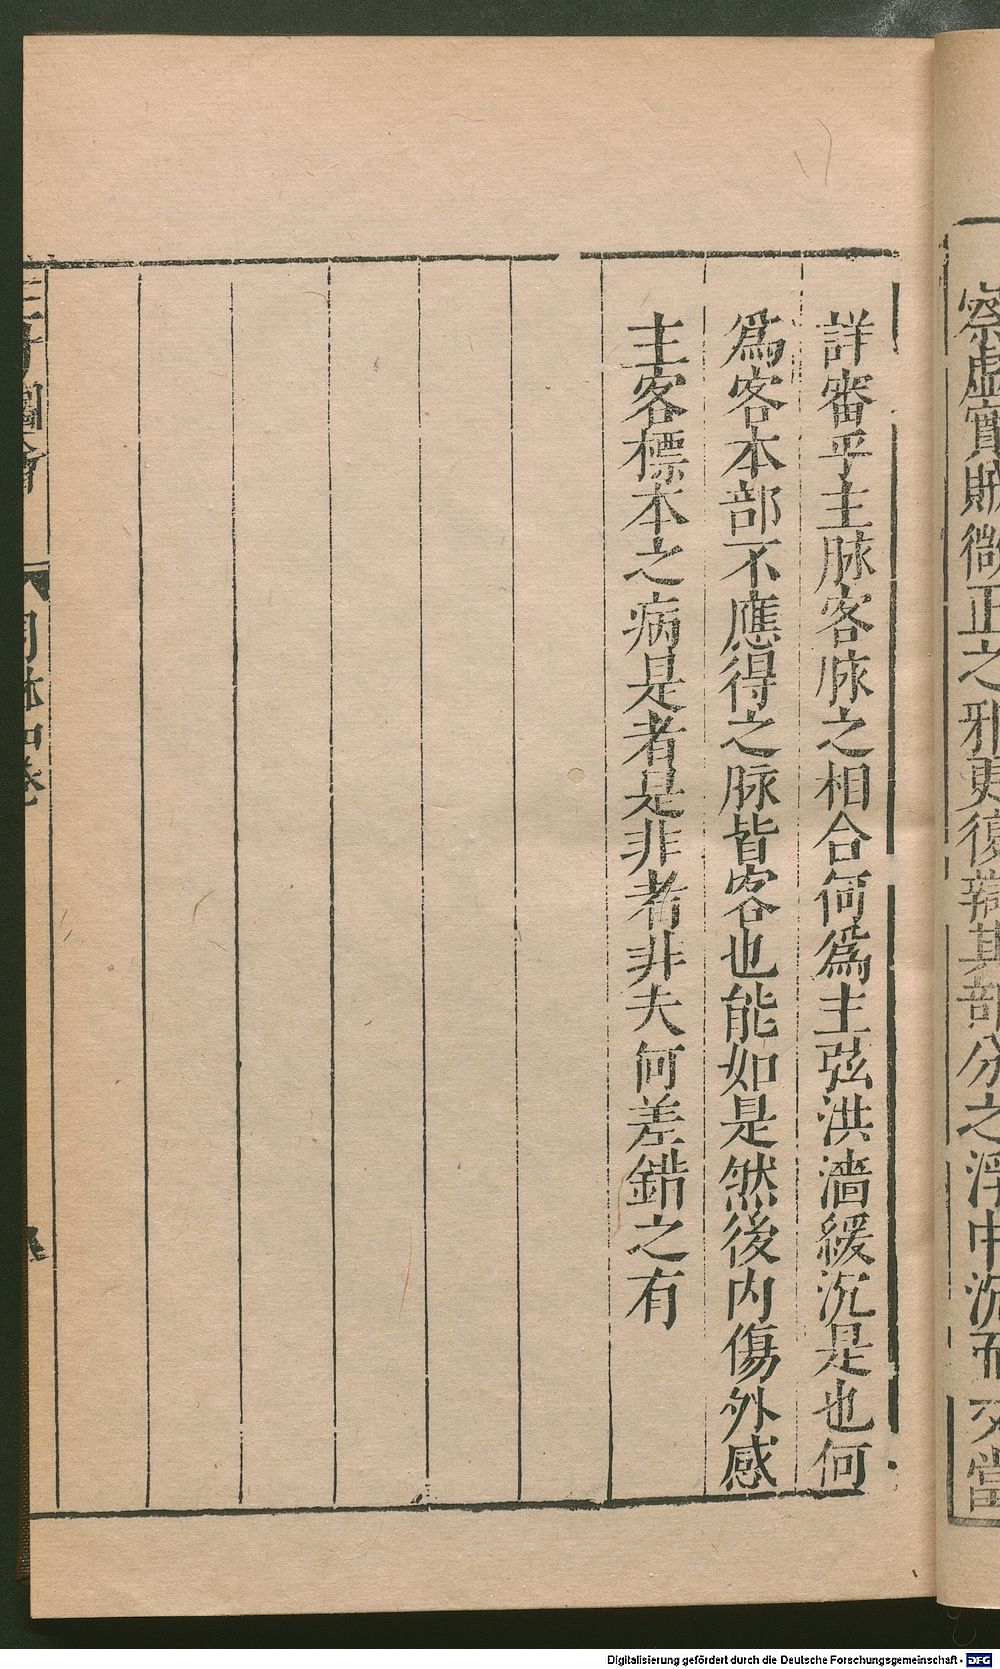 察虛實賊微正之邪更復辯其部分之浮中沉而
詳審乎主脉客脉之相合何爲主弦洪濇緩沉是也何
爲客本部不應得之脉皆客也能如是然後内傷外感
主客標本之病是者是非者非夫何差錯之有
Digitalisierung gefördert durch die Deutsche Forschungsgemeinschaft - DFG